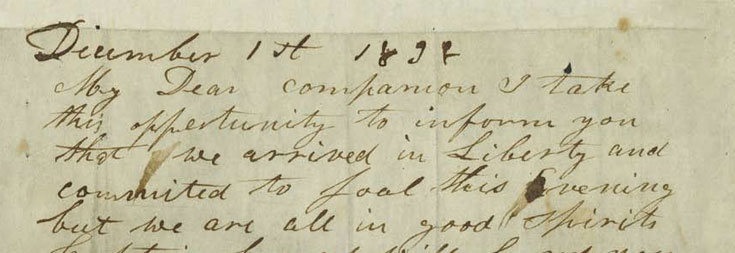 Dicember 1st 1838
My Dear companion I take
this oppertunity to inform you
that we arrived in Liberty and
commited to Joal this Evening
but we are all in good spirits